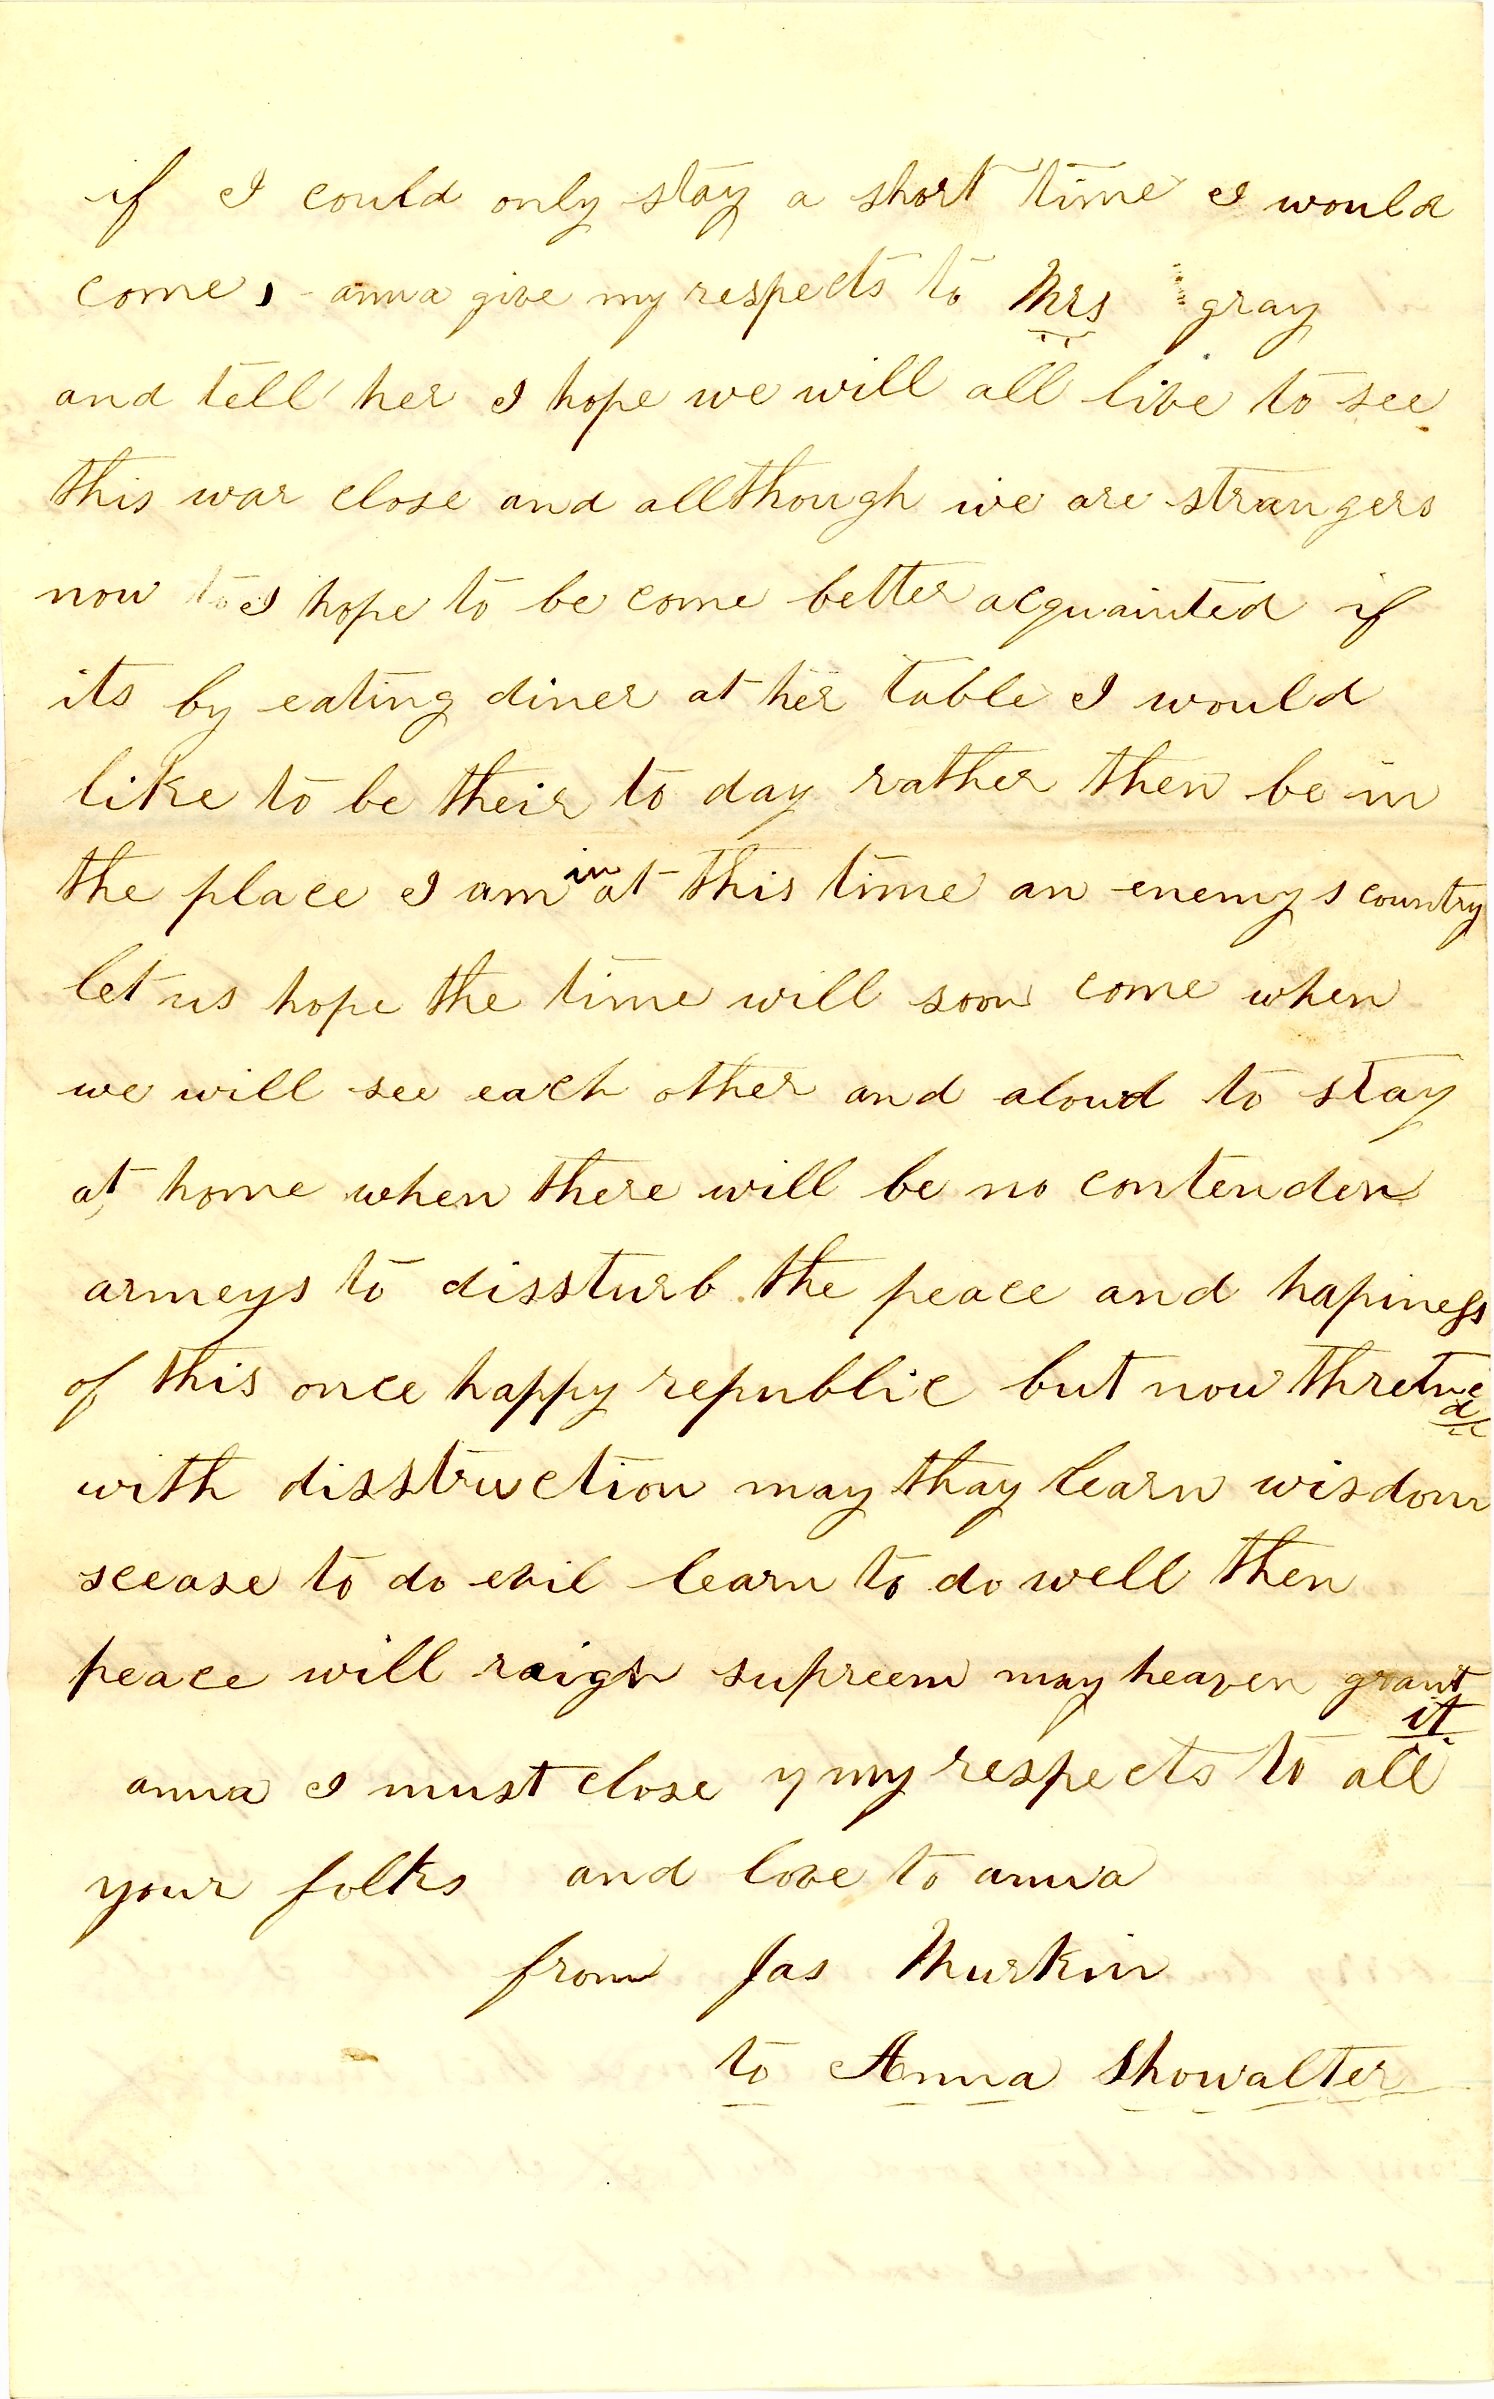 if I could only stay a short time I would
come, anna give my respects to Mrs gray
and tell her I hope we will all live to see
this war close and allthough we are strangers
now to I hope to be come better acquainted if
its by eating diner at her table I would
like to be their to day rather then be in
the place I am in at this time an enemys country
let us hope the time will soon come when
we will see each other and aloud to stay
at home when there will be no contenden
armeys to dissturb the peace and hapiness
of this once happy republic but now thretned
with disstruction may thay learn wisdom
scease to do evil learn to do well then
peace will raign supreem may heaven grant
it
anna I must close my respects to all
your folks and love to anna
from Jas Murkin
to Anna Showalter